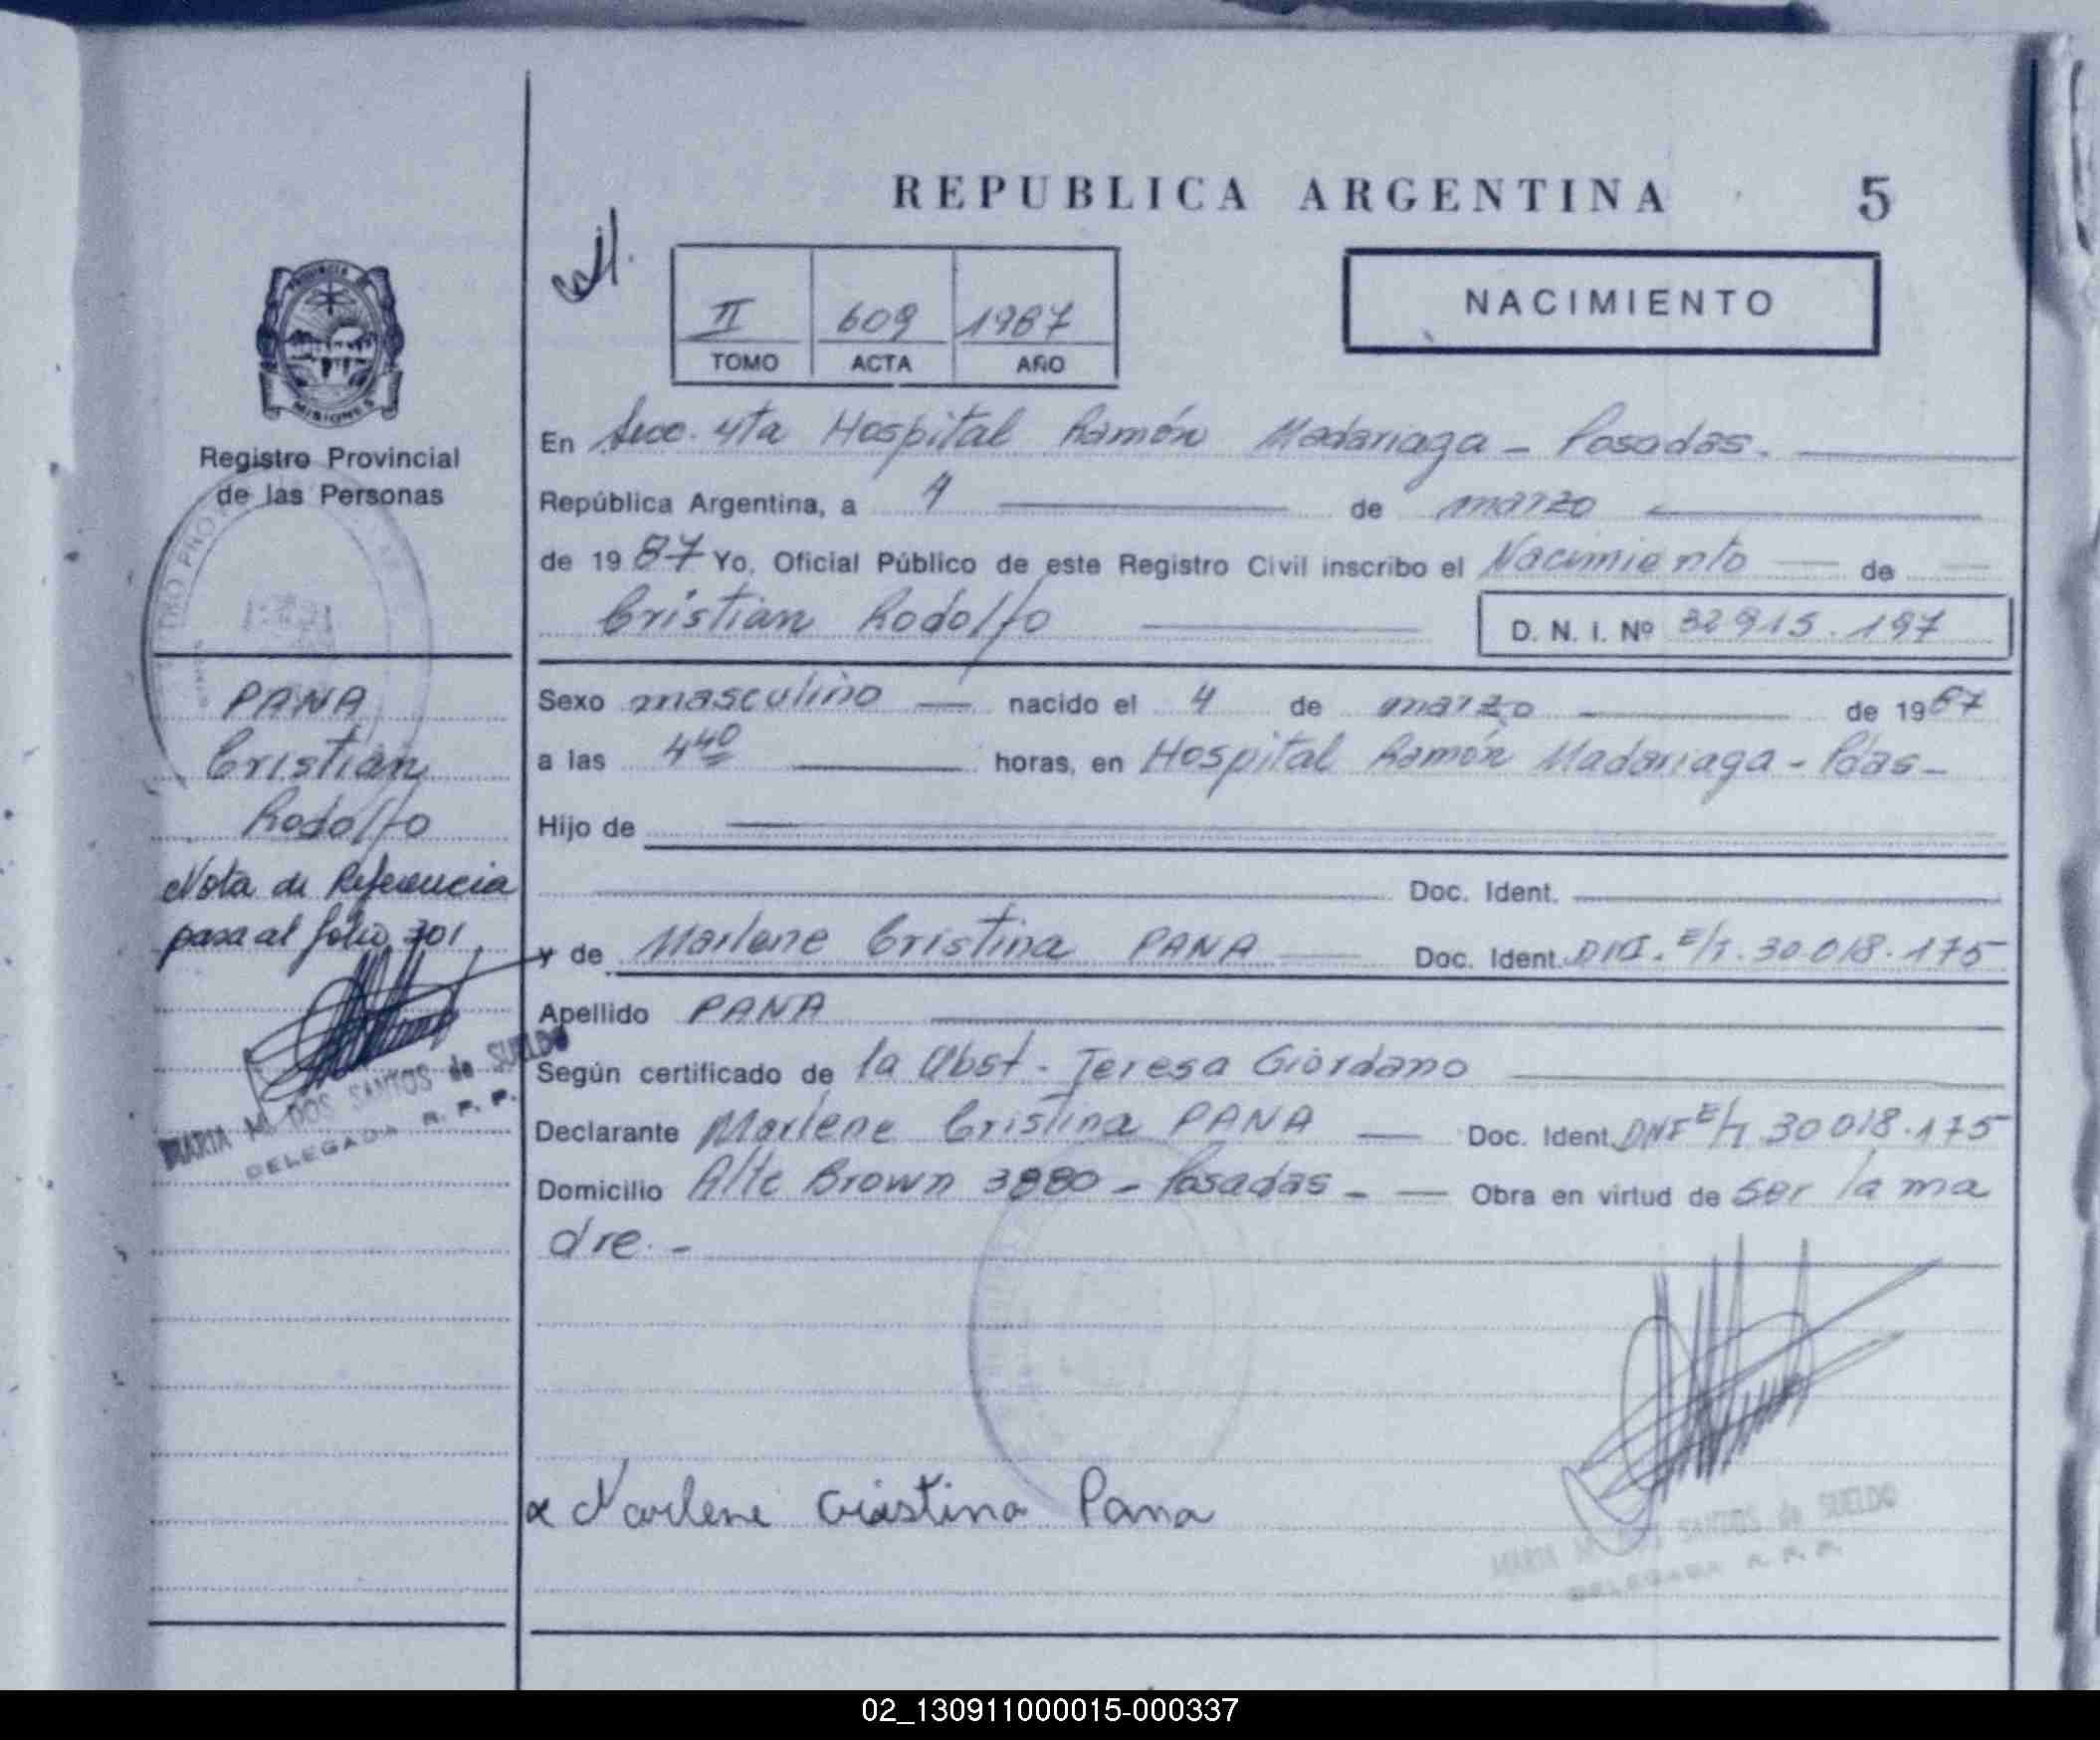 REPUBLICA ARGENTINA 5
II 609 1987
TOMO ACTA AÑO
NACIMIENTO
MISIONES
Registro Provincial
de las Personas
PANA
Cristian
Rodolfo
Nota de Referencia
pasa al folio 301
MARIA M. DOS SANTOS de SUELDO
DELEGADA R. P. P.
En Secc. 4ta Hospital Ramón Madariaga - Posadas.
República Argentina, a 4 de marzo
de 1987 Yo, Oficial Público de este Registro Civil inscribo el Nacimiento de
Cristian Rodolfo D. N. I. Nº 32915.197
Sexo masculino nacido el 4 de marzo de 1987
a las 4 40 horas, en Hospital Ramón Madariaga - Pdas -
Hijo de
Doc. Ident.
y de Marlene Cristina PANA Doc. Ident. DNI. E/T. 30 018.175
Apellido PANA
Según certificado de la Obst. Teresa Giordano
Declarante Marlene Cristina PANA Doc. Ident. DNI E/T 30 018.175
Domicilio Alte Brown 3880 - Posadas - Obra en virtud de ser la ma
dre. -
x Marlene Cristina Pana
MARIA M. DOS SANTOS de SUELDO
DELEGADA R. P. P.
02_130911000015-000337